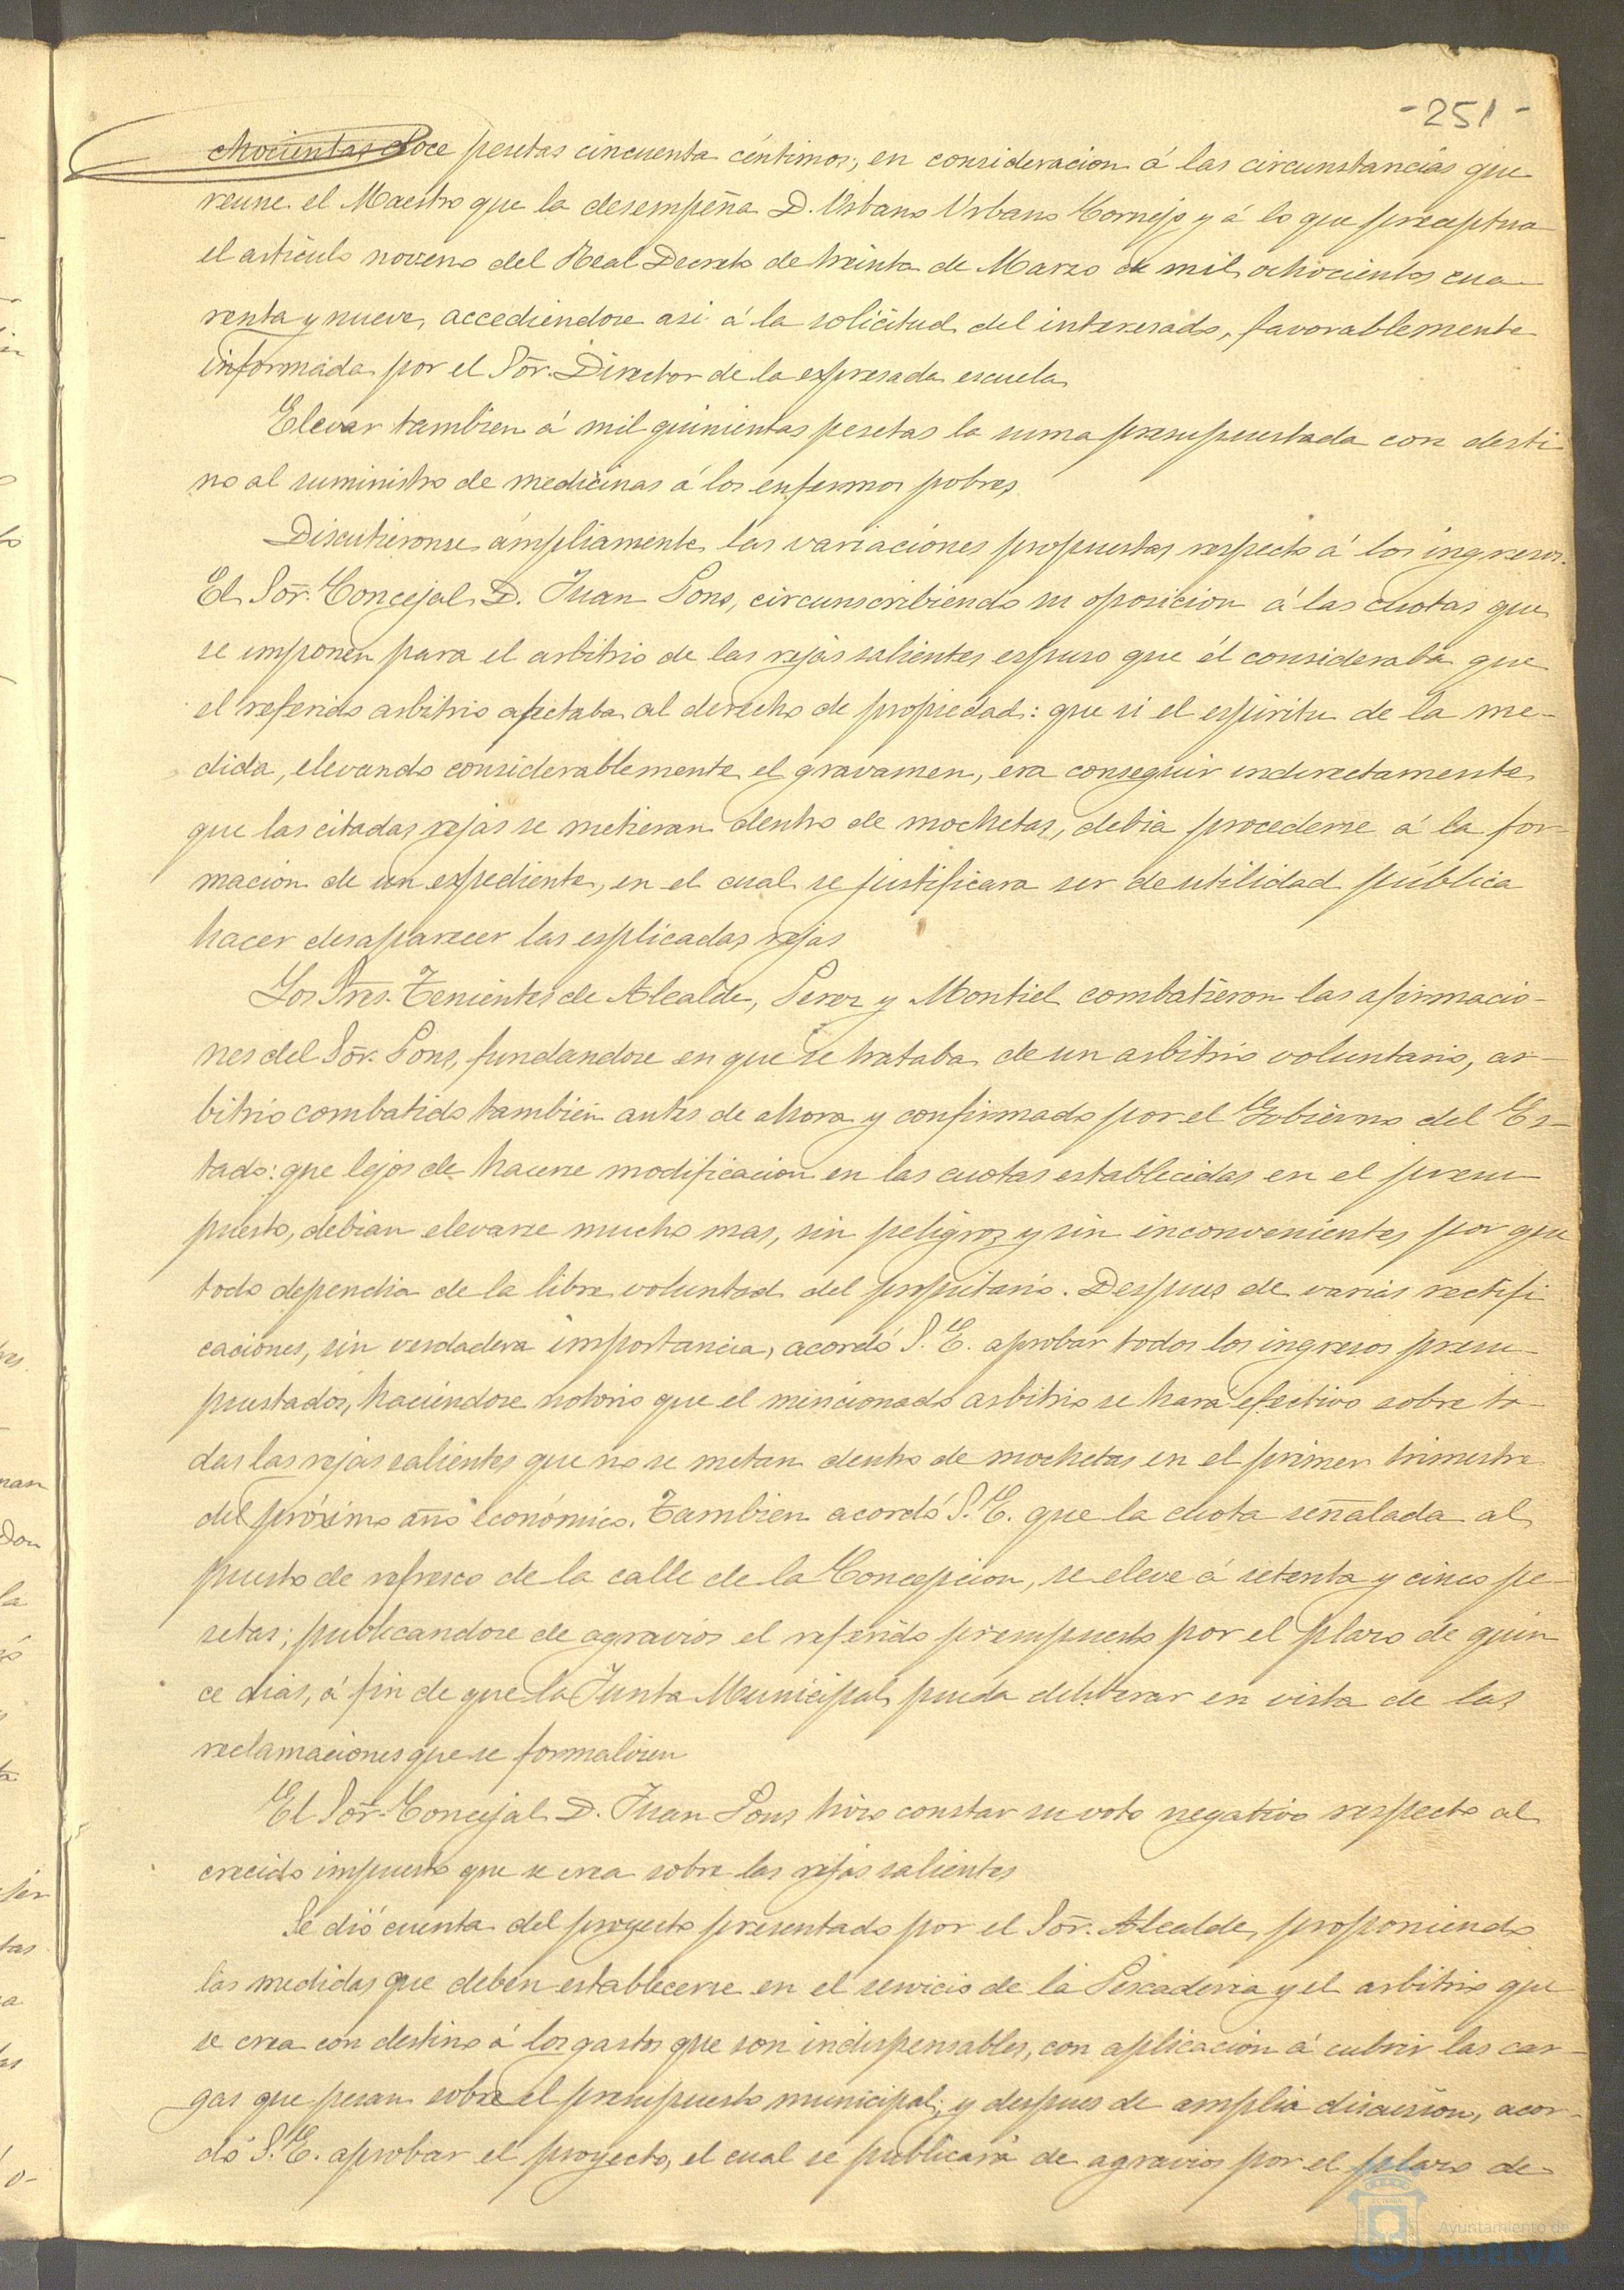 -251-
ochocientas doce pesetas cincuenta céntimos; en consideracion á las circunstancias que
reune el Maestro que la desempeña D. Urbano Urbano Cornejo y á lo que preceptua
el articulo noveno del Real Decreto de treinta de Marzo de mil ochocientos cua-
renta y nueve, accediendose asi á la solicitud del interesado, favorablemente
informada por el Sõr. Director de la expresada escuela
Elevar tambien á mil quinientas pesetas la suma presupuestada con desti
no al suministro de medicinas á los enfermos pobres
Discutieronse ámpliamente las variaciones propuestas respecto á los ingresos.
El Sõr. Concejal D. Juan Pons, circunscribiendo su oposicion á las cuotas que
se imponen para el arbitrio de las rejas salientes espuso que él consideraba que
el referido arbitrio afectaba al derecho de propiedad: que si el espiritu de la me-
dida, elevando considerablemente el gravamen, era conseguir indirectamente
que las citadas rejas se metieran dentro de mochetas, debia procederse á la for-
macion de un expediente, en el cual se justificara ser de utilidad pública
hacer desaparecer las esplicadas rejas
Los Sres. Tenientes de Alcalde, Perez y Montiel combatieron las afirmacio-
nes del Sõr. Pons, fundandose en que se trataba de un arbitrio voluntario, ar-
bitrio combatido tambien antes de ahora y confirmado por el Gobierno del Es-
tado: que lejos de hacerse modificacion en las cuotas establecidas en el presu-
puesto, debian elevarse mucho mas, sin peligros y sin inconvenientes por que
todo dependia de la libre voluntad del propietario. Despues de varias rectifi
caciones, sin verdadera importancia, acordó S. E. aprobar todos los ingresos presu-
puestados, haciendose notorio que el mencionado arbitrio se hara efectivo sobre to-
das las rejas salientes que no se metan dentro de mochetas en el primer trimestre
del próximo año económico. Tambien acordó S. E. que la cuota señalada al
puesto de refresco de la calle de la Concepcion, se eleve á setenta y cinco pe-
setas; publicandose de agravios el referido presupuesto por el plazo de quin
ce dias, á fin de que la Junta Municipal pueda deliberar en vista de las
reclamaciones que se formalicen
El Sõr. Concejal D. Juan Pons hizo constar su voto negativo respecto al
crecido impuesto que se crea sobre las rejas salientes
Se dió cuenta del proyecto presentado por el Sõr. Alcalde, proponiendo
las medidas que deben establecerse en el servicio de la Pescaderia y el arbitrio que
se crea con destino á los gastos que son indispensables, con aplicacion á cubrir las car-
gas que pesan sobre el presupuesto municipal; y despues de amplia discusion, acor-
dó S. E. aprobar el proyecto, el cual se publicará de agravios por el plazo de
Ayuntamiento de
HUELVA